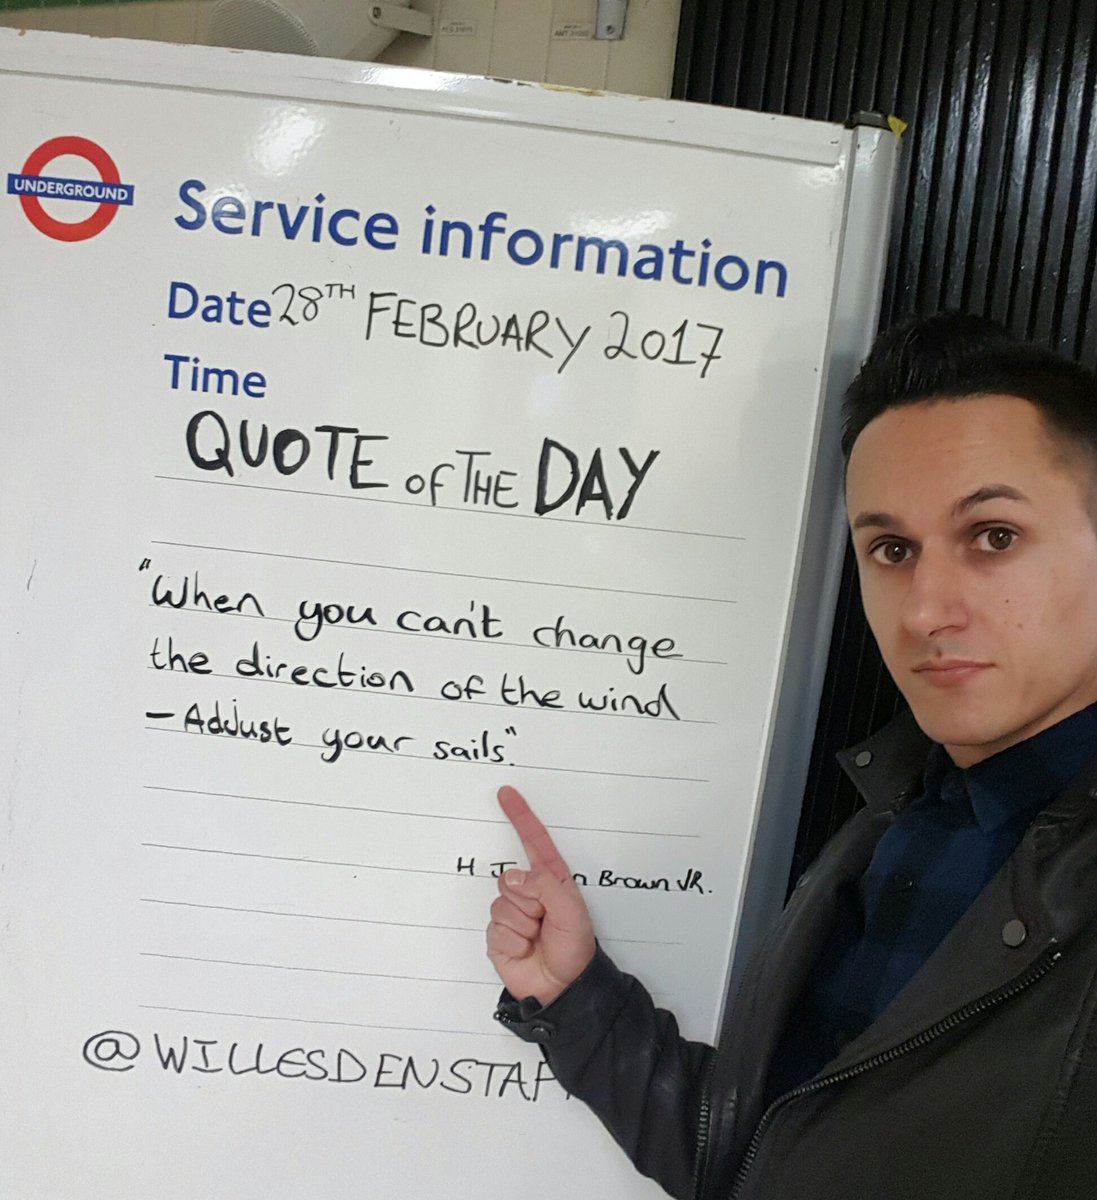 UNDERGROUND
Service information
Date 28TH FEBRUARY 2017
Time
QUOTE of THE DAY
"When you can't change
the direction of the wind
- Adjust your sails."
H Brown JR.
@WILLESDENSTAF